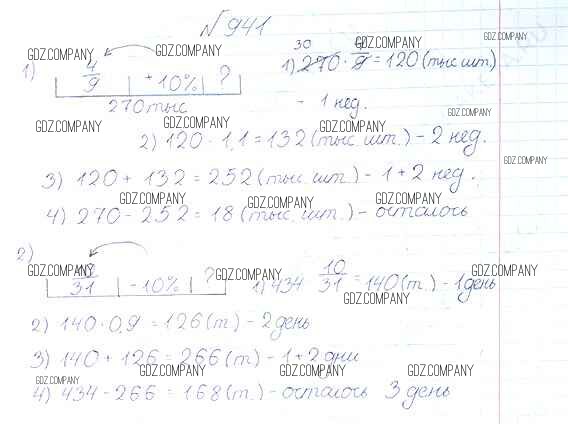 №941
GDZ.COMPANY GDZ.COMPANY GDZ.COMPANY
1) 4/9 +10% ? 1) 270 · 4/9 = 120 (тыс шт.)
30
270 тыс - 1 нед.
GDZ.COMPANY GDZ.COMPANY GDZ.COMPANY GDZ.COMPANY
2) 120 · 1,1 = 132 (тыс. шт.) - 2 нед.
GDZ.COMPANY
3) 120 + 132 = 252 (тыс. шт.) - 1 + 2 нед.
GDZ.COMPANY GDZ.COMPANY GDZ.COMPANY
4) 270 - 252 = 18 (тыс. шт.) - осталось
2)
GDZ.COMPANY GDZ.COMPANY GDZ.COMPANY
31 -10% ? 1) 434 10/31 = 140 (т.) - 1 день
GDZ.COMPANY
2) 140 · 0,9 = 126 (т.) - 2 день
3) 140 + 126 = 266 (т.) - 1 + 2 дни
GDZ.COMPANY GDZ.COMPANY GDZ.COMPANY GDZ.COMPANY
4) 434 - 266 = 168 (т.) - осталось 3 день